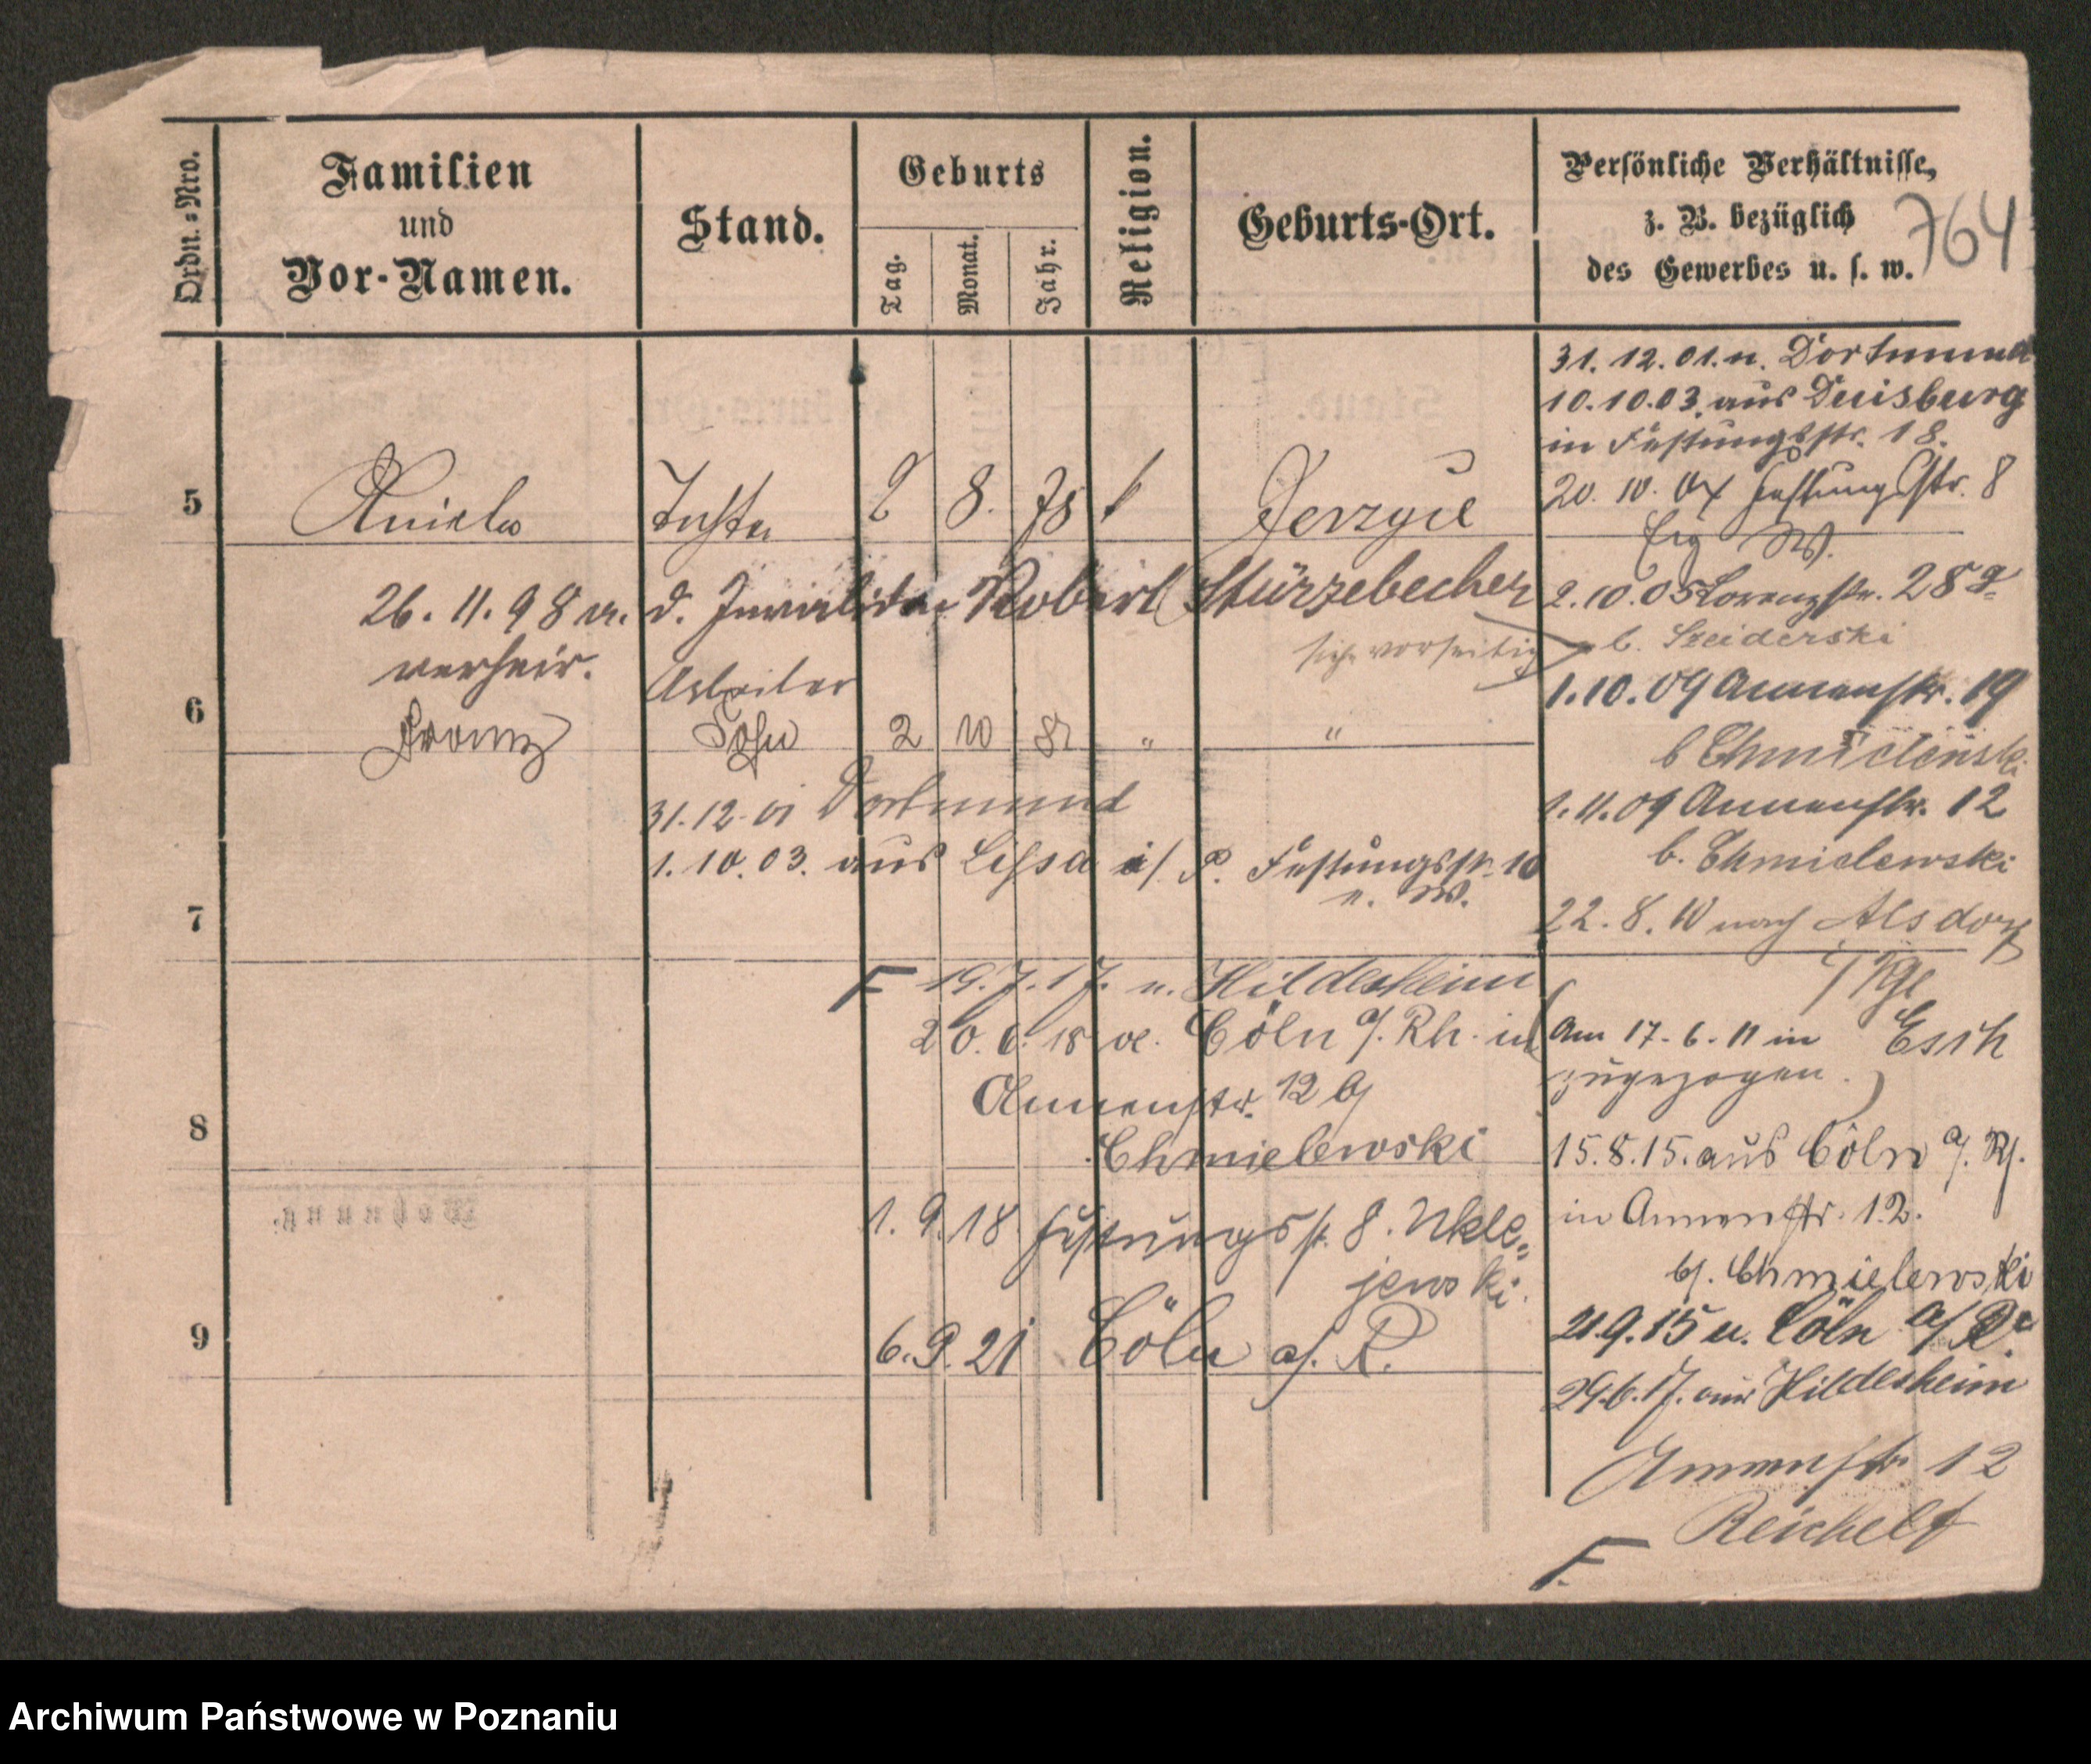 Ordn.=Nro.
Familien
und
Vor-Namen.
Stand.
Geburts
Tag.
Monat.
Jahr.
Religion.
Geburts-Ort.
Persönliche Verhältnisse,
z. B. bezüglich
des Gewerbes u. s. w.
764
31. 12. 01. n. Dortmund
10. 10. 03. aus Duisburg
in Festungsstr. 18.
5 Aniela Tochter 2 8. 78 k Jerzyce
20. 10. 04 Festungsstr. 8
26. 11. 98 m. d. Invaliden Robert Stürzebecher
verheir.
siehe vorseitig
2. 10. 05 Lorenzstr. 28a
b. Szeiderski
1. 10. 09 Annenstr. 19
b Chmielenski
6 Franz Arbeiter
Sohn 2 10 82 " "
31. 12. 01 Dortmund
1. 10. 03. aus Lissa i/P. Festungsstr. 18
n. W.
1. 11. 09 Annenstr. 12
b. Chmielewski
7
22. 8. 10 nach Alsdorf
F 19. 7. 17. n. Hildesheim
20. 6. 18 v. Cöln a/. Rh. in
Annenstr. 12 bj
Chmielewski
(Am 17. 6. 11 in Esch
zugezogen.)
8
15. 8. 15. aus Cöln a/. Rh.
in Annenstr. 12.
bj. Chmielewski
1. 9. 18 Festungsstr. 8. Nkle=
jewski.
9
6. 9. 21 Cöln a/. R.
21. 9. 15 n. Cöln a/R.
29. 6. 17. aus Hildesheim
Annenstr. 12
Reichelt
F.
Wohnung.
Archiwum Państwowe w Poznaniu